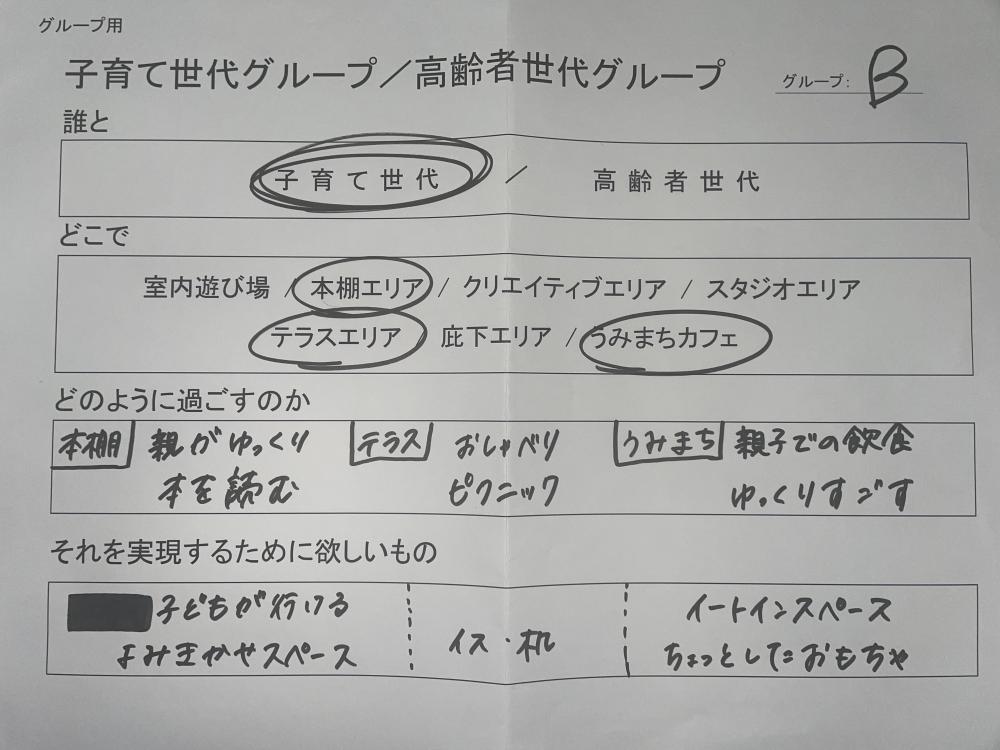 グループ用
子育て世代グループ／高齢者世代グループ グループ: B
誰と
子育て世代 ／ 高齢者世代
どこで
室内遊び場 / 本棚エリア / クリエイティブエリア / スタジオエリア
テラスエリア / 庇下エリア / うみまちカフェ
どのように過ごすのか
本棚 親がゆっくり テラス おしゃべり うみまち 親子での飲食
本を読む ピクニック ゆっくりすごす
それを実現するために欲しいもの
子どもが行ける イートインスペース
よみきかせスペース イス・机 ちょっとしたおもちゃ